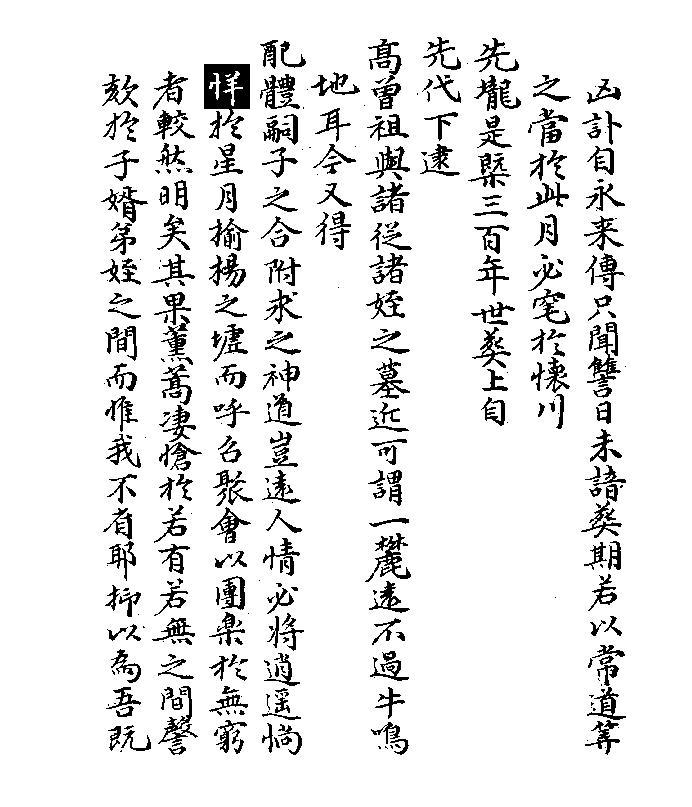 凶訃自永來傳只聞讐日未諳葬期若以常道筭
之當於此月必窆於懷川
先壠是槩三百年世葬上自
先代下逮
高曾祖與諸從諸姪之墓近可謂一麓遠不過牛鳴
地耳今又得
配體嗣子之合附求之神道豈遠人情必將逍遥惝
於星月揄揚之墟而呼召聚會以團樂於無窮
者較然明矣其果薰蒿凄愴於若有若無之間謦
欬於子婿弟姪之間而惟我不有耶抑以為吾既